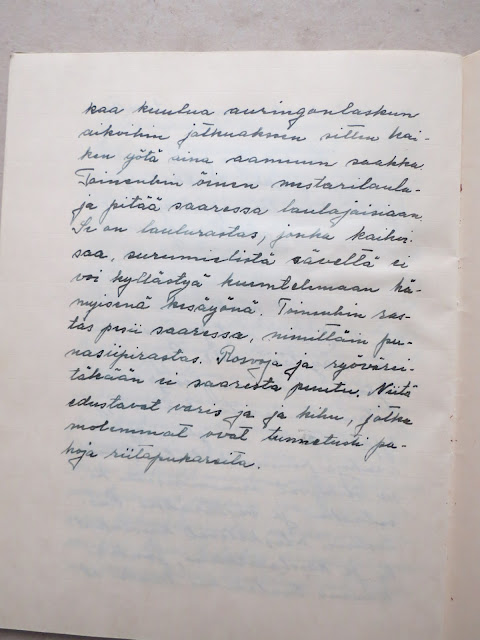 kaa kuulua auringonlaskun
aikoihin jatkuakseen sitten kai-
ken yötä aina aamuun saakka.
Toinenkin öinen mestarilaula-
ja pitää saaressa laulajaisiaan.
Se on laulurastas, jonka kaihoi-
saa, surumielistä säveltä ei
voi kyllästyä kuuntelemaan hä-
myisenä kesäyönä. Toinenkin ras-
tas pesii saaressa, nimittäin pu-
nasiipirastas. Rosvoja ja ryövärei-
täkään ei saaresta puutu. Niitä
edustavat varis ja ja kihu, jotka
molemmat ovat tunnetusti pa-
hoja riitapukareita.